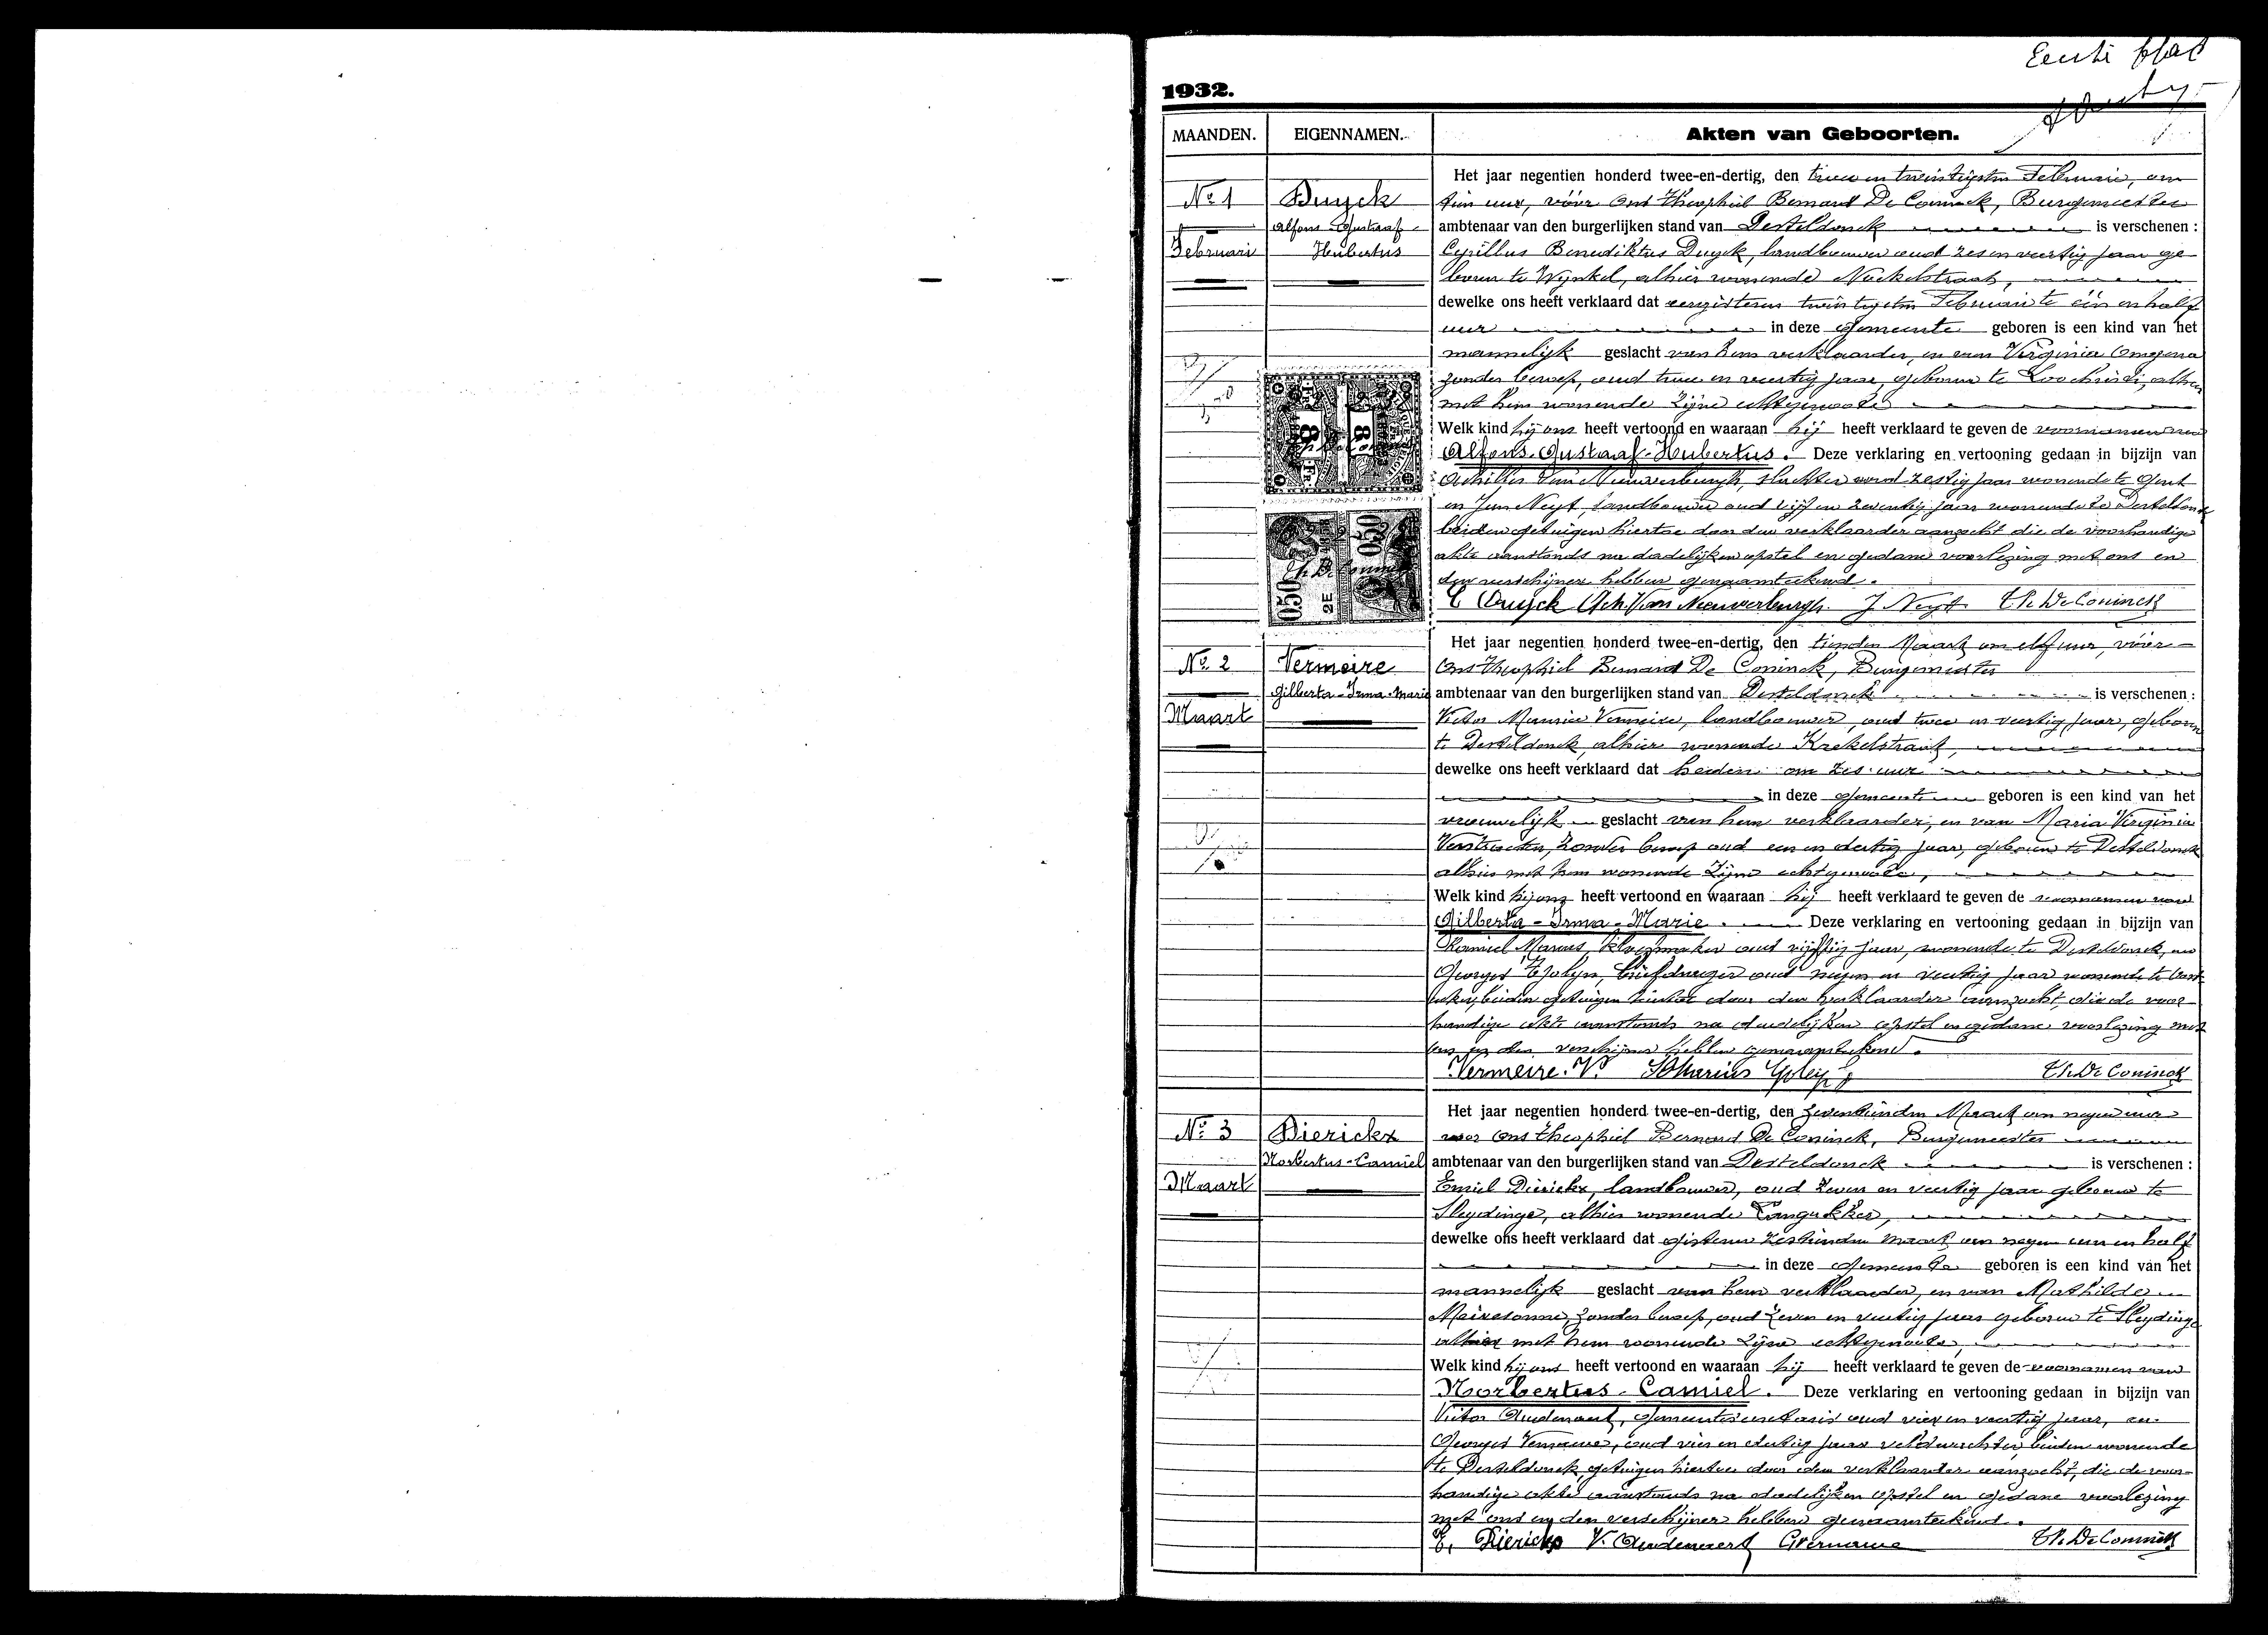 Eerste blad
1932.
MAANDEN. EIGENNAMEN. Akten van Geboorten.
Het jaar negentien honderd twee-en-dertig, den twee en twintigsten Februarie, om
No 1 Duyck tien uur, vóór Ons Theophiel Bernard De Coninck, Burgemeester
Alfons-Gustaaf- ambtenaar van den burgerlijken stand van Desteldonck is verschenen :
Februari Hubertus Cyrillus Benediktus Duyck, landbouwer oud zes en veertig jaar ge
boren te Wynkel, alhier wonende Nockelstraat,
dewelke ons heeft verklaard dat eergisteren twintigsten Februari te één en half
uur in deze gemeente geboren is een kind van het
mannelijk geslacht van hem verklaarder, en van Virginia
zonder beroep, oud twee en veertig jaar, geboren te Loochristi, alhier
met hem wonende zijne echtgenoote
Welk kind hij ons heeft vertoond en waaraan hij heeft verklaard te geven de voornamen van
Alfons-Gustaaf-Hubertus. Deze verklaring en vertooning gedaan in bijzijn van
Achilles Van Nieuwerburgh, slachter oud zestig jaar wonende te Gent
en Jan Neyt, landbouwer oud vijf en zeventig jaar wonende te Desteldonck
beiden getuigen hiertoe door den verklaarder aanzocht die de voorhandige
akte aanstonds na dadelijken opstel en gedane voorlezing met ons en
den verschijner hebben genaamteekend.
C Duyck Ach Van Nieuwerburgh. J Neyt Th. De Coninck
Het jaar negentien honderd twee-en-dertig, den tienden Maart om elf uur, vóór
No 2 Vermeire Ons Theophiel Bernard De Coninck, Burgemeester
Gilberta-Irma-Marie ambtenaar van den burgerlijken stand van Desteldonck is verschenen :
Maart Victor Maurice Vermeire, landbouwer, oud twee en veertig jaar, geboren
te Desteldonck, alhier wonende Krekelstraat,
dewelke ons heeft verklaard dat heden om zes uur
in deze gemeente geboren is een kind van het
vrouwelijk geslacht van hem verklaarder, en van Maria Virginia
Verstraeten, zonder beroep oud een en dertig jaar, geboren te Desteldonck
alhier met hem wonende zijne echtgenoote,
Welk kind hij ons heeft vertoond en waaraan hij heeft verklaard te geven de voornamen van
Gilberta-Irma-Marie. Deze verklaring en vertooning gedaan in bijzijn van
Marius, oud vijftig jaar, wonende te Desteldonck, en
Georges briefdrager oud negen en veertig jaar wonende te Oost
beiden getuigen hiertoe door den verklaarder aanzocht, die de voor
handige akte aanstonds na dadelijken opstel en gedane voorlezing met
ons en den verschijner hebben genaamteekend.
Vermeire. V. Marius Th. De Coninck
Het jaar negentien honderd twee-en-dertig, den zeventienden Maart om negen uur
No 3 Dierickx voor Ons Theophiel Bernard De Coninck, Burgemeester
Norbertus-Camiel ambtenaar van den burgerlijken stand van Desteldonck is verschenen :
Maart Emiel Dierickx, landbouwer, oud zeven en veertig jaar geboren te
Sleydinge, alhier wonende Langakker,
dewelke ons heeft verklaard dat gisteren zestienden Maart om negen uur en half
in deze gemeente geboren is een kind van het
mannelijk geslacht van hem verklaarder, en van Mathilde
Mairesonne, zonder beroep, oud zeven en veertig jaar geboren te Sleydinge
alhier met hem wonende zijne echtgenoote,
Welk kind hij ons heeft vertoond en waaraan hij heeft verklaard te geven de voornamen van
Norbertus-Camiel. Deze verklaring en vertooning gedaan in bijzijn van
Victor Audenaert, gemeentesecretaris oud vier en veertig jaar, en
Georges Vername, oud vier en dertig jaar veldwachter, beiden wonende
te Desteldonck, getuigen hiertoe door den verklaarder aanzocht, die de voor-
handige akte aanstonds na dadelijken opstel en gedane voorlezing
met ons en den verschijner hebben genaamteekend.
E, Dierickx V. Audenaert Th. De Coninck